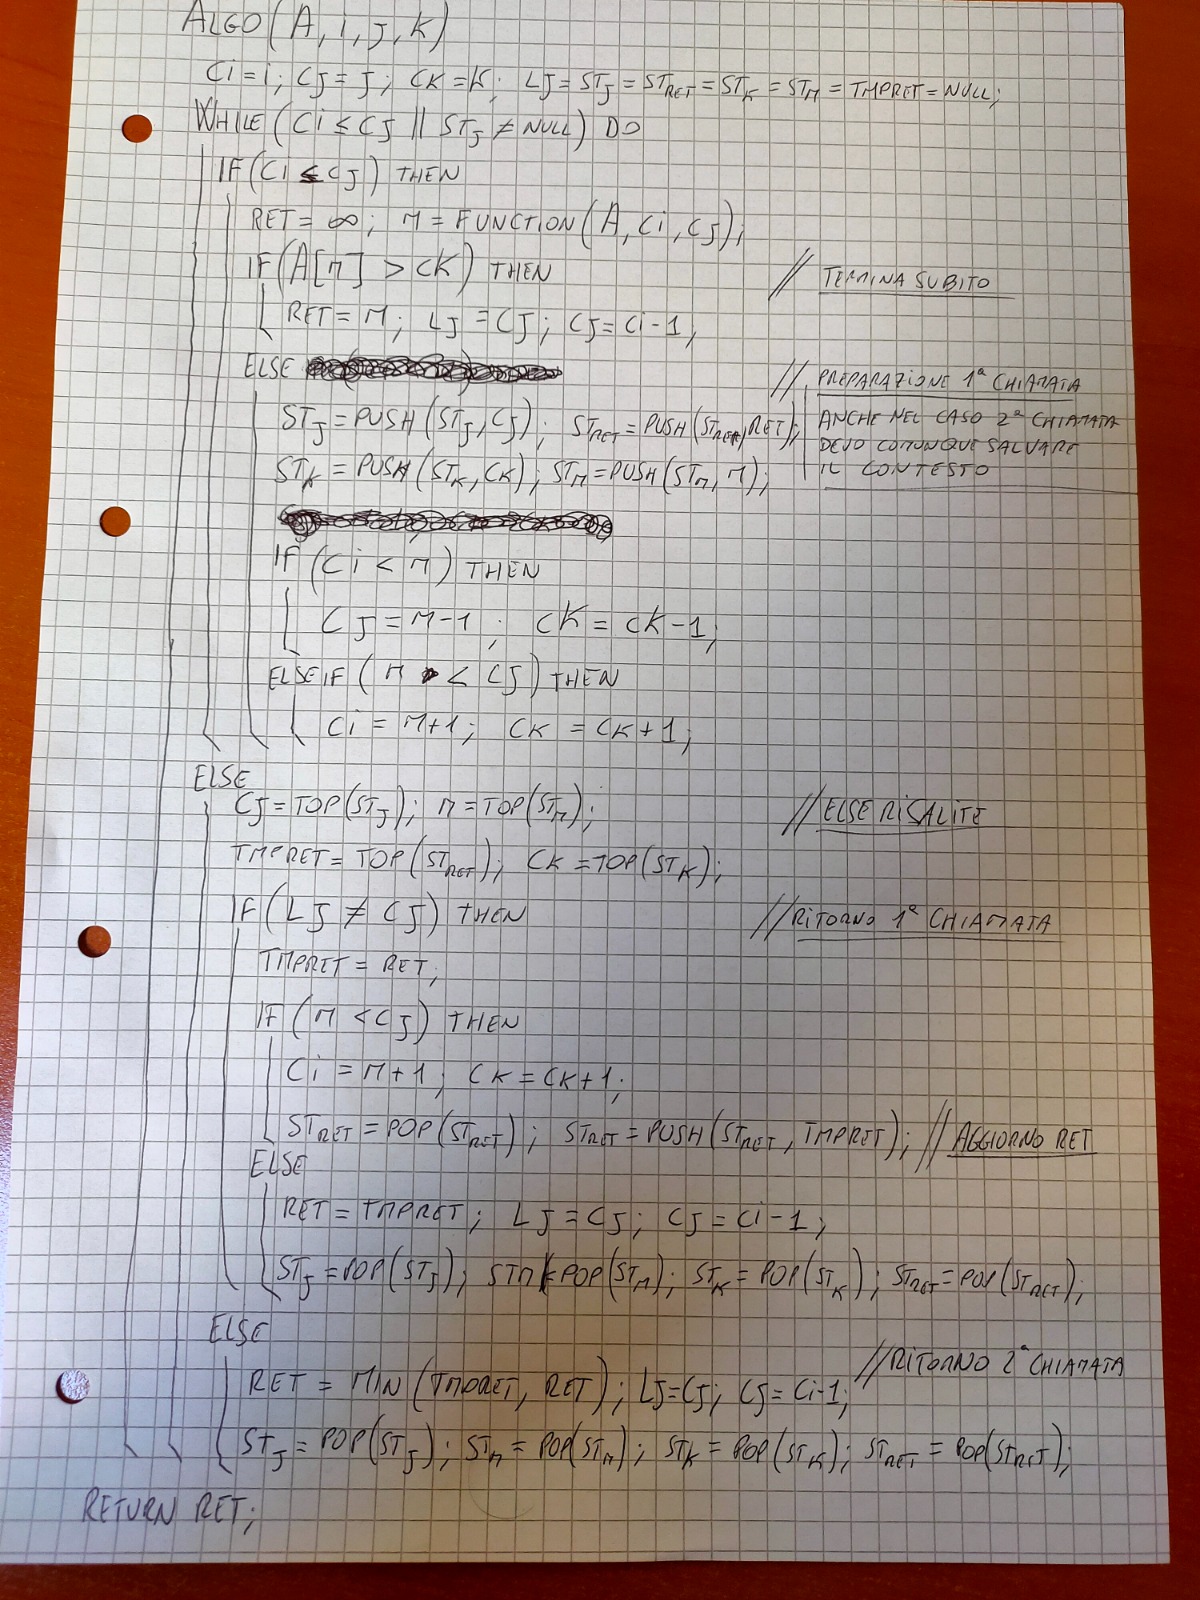 ALGO(A, i, j, K)
Ci=i; Cj=j; CK=K; Lj=STj=STRET=STK=STM=TMPRET=NULL;
WHILE(Ci≤Cj || STj≠NULL) DO
IF(Ci≤Cj) THEN
RET=∞; M=FUNCTION(A,Ci,Cj);
IF(A[M]>CK) THEN // TERMINA SUBITO
RET=M; Lj=Cj; Cj=Ci-1;
ELSE // PREPARAZIONE 1ª CHIAMATA
STj=PUSH(STj,Cj); STRET=PUSH(STRET,RET); ANCHE NEL CASO 2ª CHIAMATA
DEVO COMUNQUE SALVARE
STK=PUSH(STK,CK); STM=PUSH(STM,M); IL CONTESTO
IF(Ci<M) THEN
Cj=M-1; CK=CK-1;
ELSEIF(M<Cj) THEN
Ci=M+1; CK=CK+1;
ELSE
Cj=TOP(STj); M=TOP(STM); // ELSE RISALITE
TMPRET=TOP(STRET); CK=TOP(STK);
IF(Lj≠Cj) THEN // RITORNO 1ª CHIAMATA
TMPRET=RET;
IF(M<Cj) THEN
Ci=M+1; CK=CK+1;
STRET=POP(STRET); STRET=PUSH(STRET,TMPRET); // AGGIORNO RET
ELSE
RET=TMPRET; Lj=Cj; Cj=Ci-1;
STj=POP(STj); STM=POP(STM); STK=POP(STK); STRET=POP(STRET);
ELSE // RITORNO 2ª CHIAMATA
RET=MIN(TMPRET,RET); Lj=Cj; Cj=Ci-1;
STj=POP(STj); STM=POP(STM); STK=POP(STK); STRET=POP(STRET);
RETURN RET;